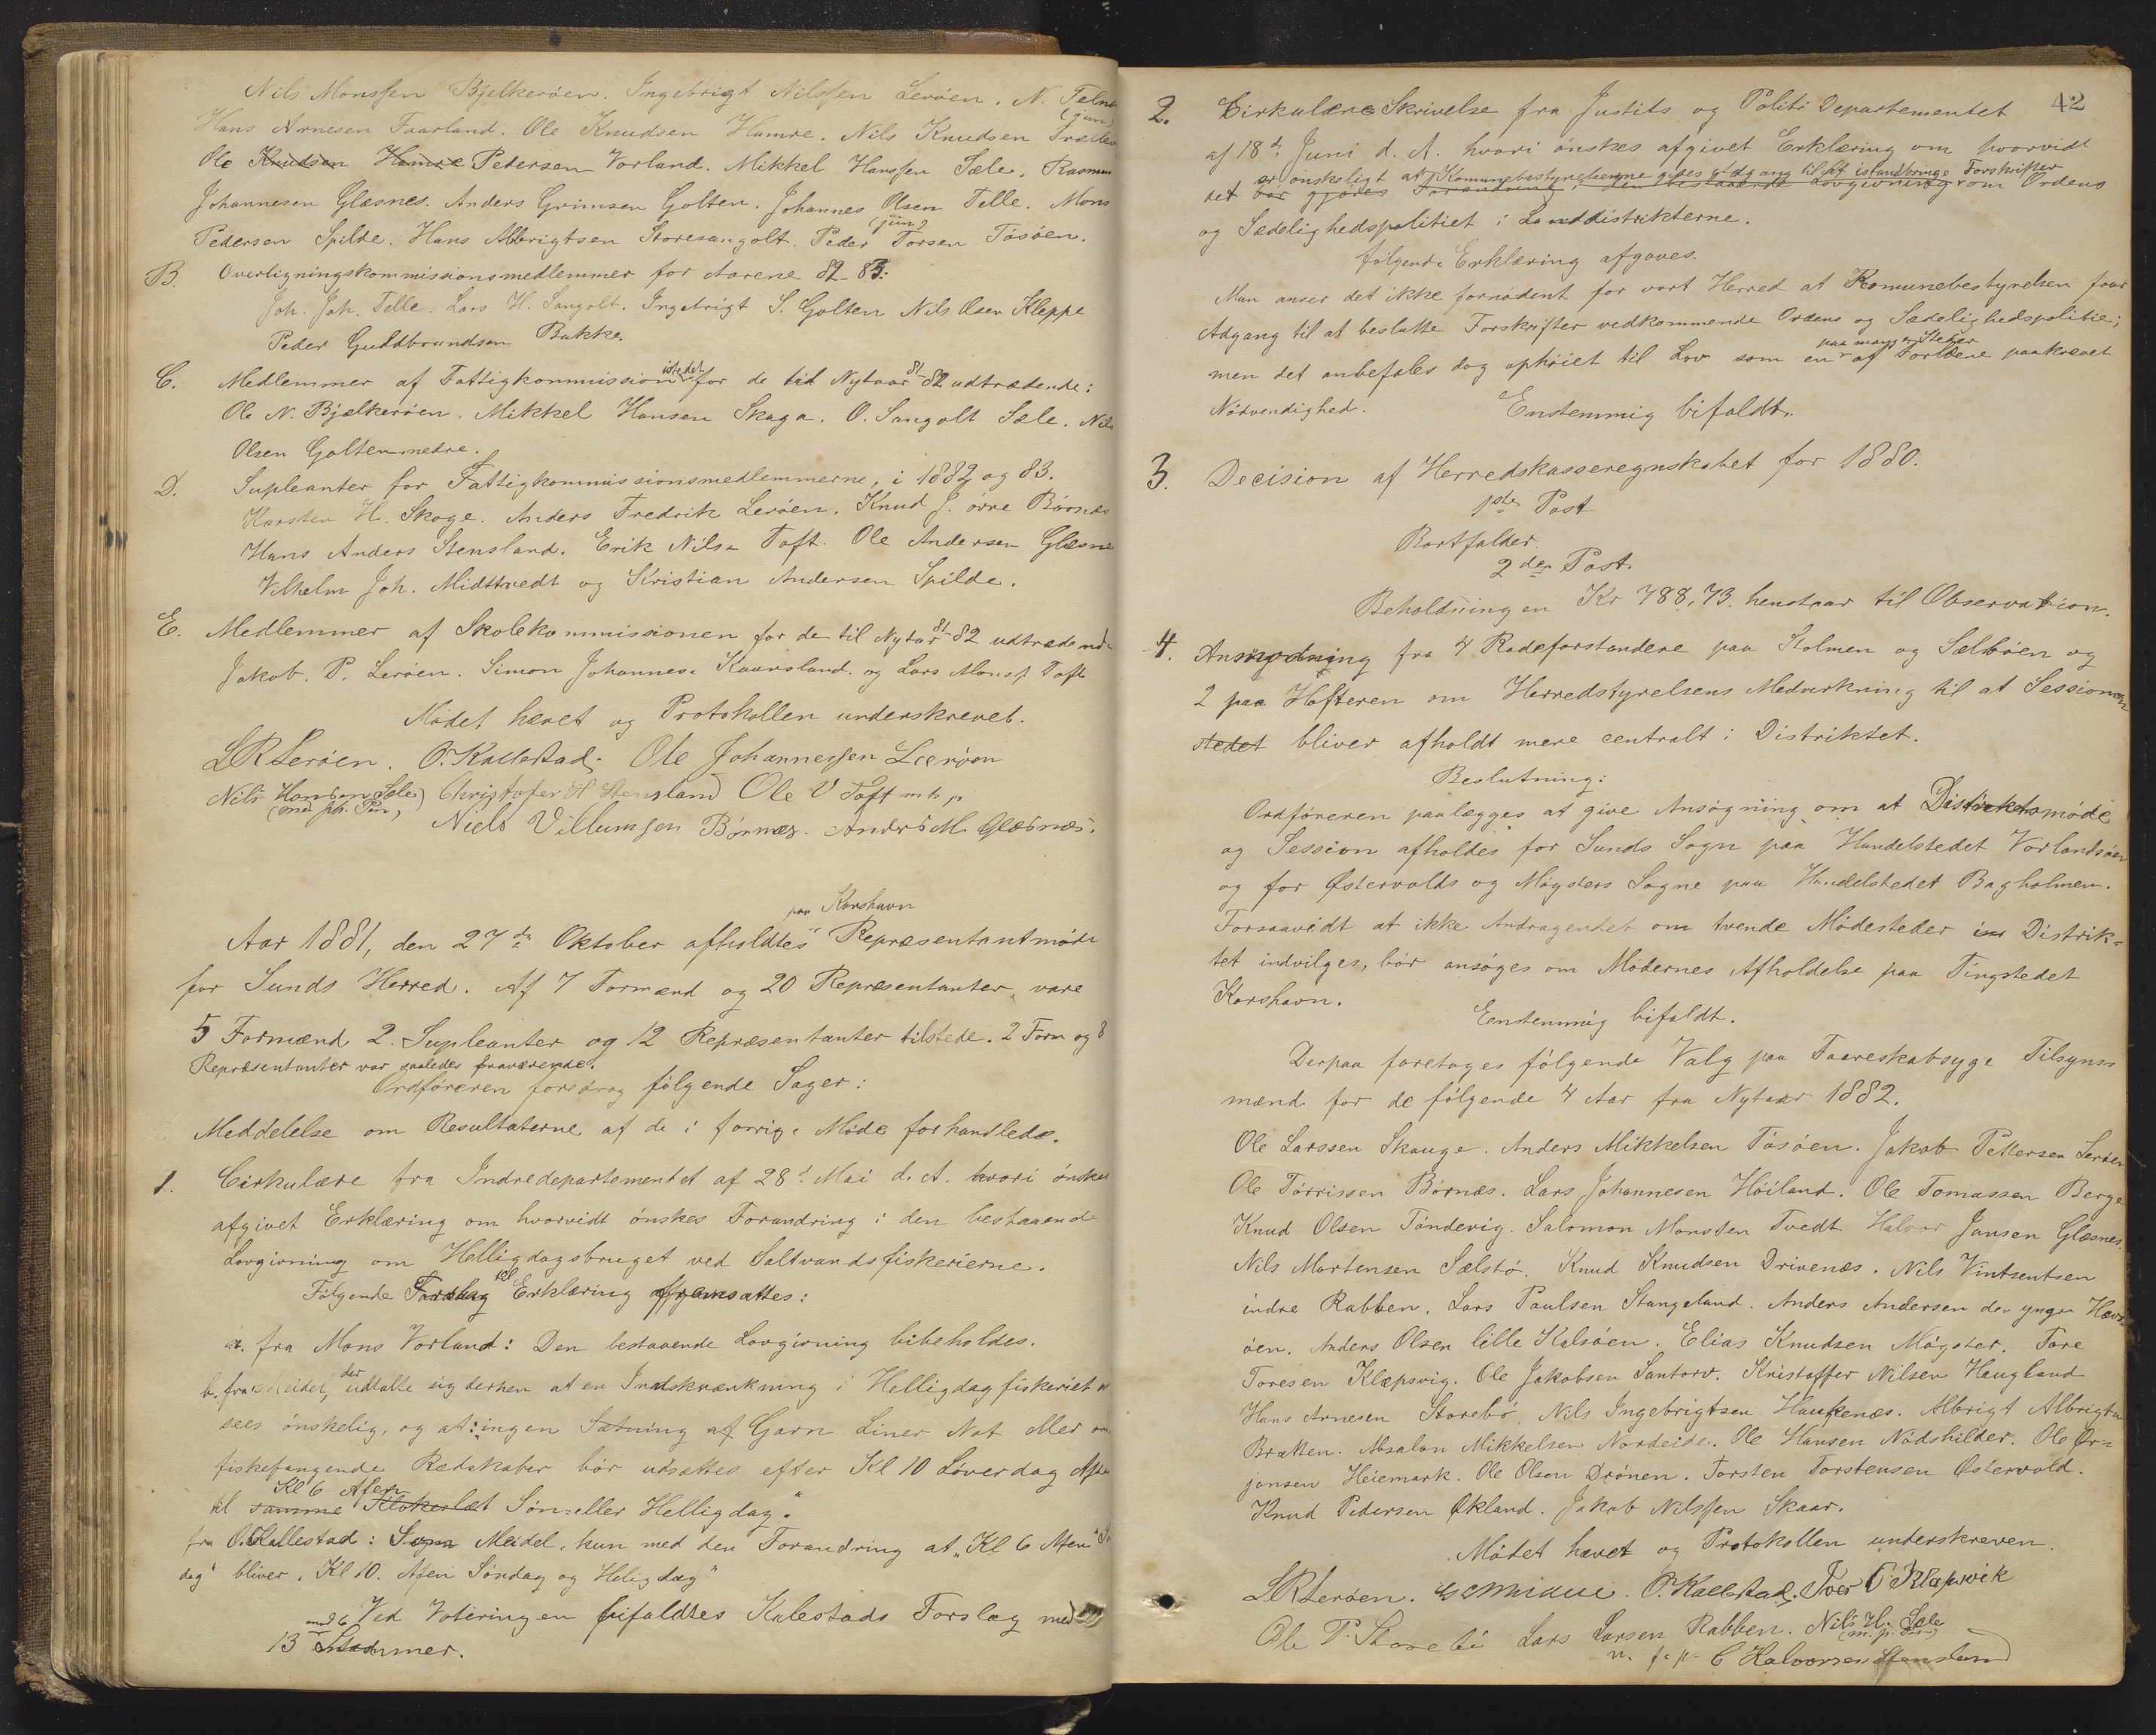 Nils Monssen Bjelkeröen. Ingebrigt Nilssen Leröen. N. Telnæ
(jun)
Hans Arnesen Faarland. Ole Knudsen Hamre. Nils Knudsen Træle
Ole Knudsen Hamre Petersen Vorland. Mikkel Hanssen Sæle. Rasmus
Johannesen Glæsnes. Anders Grimsen Golten. Johannes Olsen Telle. Mons
Pedersen Spilde. Hans Albrigtsen Storesangolt. Peder (jun) Torsen Tösöen.
B. Overligningskommissionsmedlemmer for Aarene 82-83:
Joh. Joh. Telle. Lars H. Sangolt. Ingebrigt S. Golten Nils Olsen Kleppe
Peder Guldbrandsen Bakke.
C. Medlemmer af Fattigkommission istedet for de tid Nytaar 81-82 udtrædende:
Ole N. Bjelkeröen. Mikkel Hansen Skaga. O. Sangolt Sæle. Nils
Olsen Golten nedre.
D. Supleanter for Fattigkommissionsmedlemmerne, i 1882 og 83.
Karsten H. Skoge. Anders Fredrik Leröen. Knud J. övre Börnes
Hans Anders Stensland. Erik Nilsen Toft. Ole Andersen Glæsne
Vilhelm Joh. Midttvedt og Kristian Andersen Spilde.
E. Medlemmer af Skolekommissionen for de til Nytaar 81-82 udtrædend
Jakob. P. Leröen. Simon Johannes. Kaarsland. og Lars Monss Toft
Mödet hævet og Protokollen underskrevet.
LRLeröen. O. Kallestad. Ole Johannessen Leeröen
Nils Hansen Sæle Christofer H Stensland Ole V Toft
(med ph. Pen) Niels Villumsen Börnæs. Anders M. Glæsnæs.
paa Korshavn
Aar 1881, den 27de Oktober afholdtes Repræsentantmöde
for Sunds Herred. Af 7 Formænd og 20 Repræsentanter vare
5 Formænd 2 Supleanter og 12 Repræsentanter tilstede. 2 Form og 8
Repræsentanter var saaledes fraværende.
Ordföreren foredrog fölgende Sager:
Meddelelse om Resultaterne af de i forrige Möde forhandlede.
1. Cirkulære fra Indredepartementet af 28d Mai d. A. hvori önskes
afgivet Erklæring om hvorvidt önskes Forandring i den bestaaende
Lovgivning om Helligdagsbruget ved Saltvandsfiskerierne.
Fölgende Forslag til Erklæring fremsattes:
a. fra Mons Vorland: Den bestaaende Lovgivning bibeholdes.
b. fra Meidel, der udtalte sig derhen at en Indskrænkning i Helligdagfiskeriet
sees önskelig, og at: "ingen Sætning af Garn Liner Not eller
fiskefangende Redskaber bör udsættes efter Kl 10 Löverdag Aften
Kl 6 Aften
til samme Klokeslæt Sön- eller Helligdag."
fra O. Kallestad: Som Meidel, kun med den Forandring at "Kl 6 Aften
dag" bliver "Kl 10. Aften Söndag og Helligdag"
Ved Voteringen bifaldtes Kalestads Forslag med
mod 6
13 Stemmer.
42
2. Cirkulære Skrivelse fra Justits og Politi Departementet
af 18de Juni d. A. hvori önskes afgivet Erklæring om hvorvidt
er önskeligt at Komunebestyrelserne gives Adgang til at istandbringe Forskrifter
det bör gjöres Forandring i den bestaaende Lovgivning om Ordens
og Sædelighedspolitiet i Landdistrikterne.
fölgende Erklæring afgaves.
Man anser det ikke fornödent for vort Herred at Komunebestyrelsen faar
Adgang til at beslutte Forskrifter vedkommende Ordens og Sædelighedspolitie;
paa mange Steder
men det anbefales dog ophöiet til Lov som en af Tortiden paakrævet
Nödvendighed. Enstemmig bifaldt.
3. Decision af Herredskasseregnskabet for 1880.
1ste Post
Bortfalder.
2den Post.
Beholdningen Kr 788,73. henstaar til Observation.
4. Ansögning fra 4 Rodeforstandere paa Stolmen og Selböen og
2 paa Hufteren om Herredstyrelsens Medvirkning til at Sessionen
stedet bliver afholdt mere centralt i Distriktet.
Beslutning:
Ordföreren paalægges at give Ansögning om at Distriktsmöde
og Session afholdes for Sunds Sogn paa Handelstedet Vorlandsöen
og for Østervolds og Mögsters Sogne paa Handelstedet Bagholmen.
Forsaavidt at ikke Andragendet om tvende Mödesteder i Distrik-
tet indvilges, bör ansöges om Mödernes Afholdelse paa Tingstedet
Korshavn.
Eenstemmig bifaldt.
Derpaa foretoges fölgende Valg paa Faareskabsyge Tilsyns-
mænd for de fölgende 4 Aar fra Nytaar 1882.
Ole Larssen Skauge. Anders Mikkelsen Tösöen. Jakob Pettersen Leröen
Ole Törrissen Börnæs. Lars Johannesen Höiland. Ole Tomassen Berge
Knud Olsen Töndevig. Salomon Monsten Tvedt Halvor Jansen Glæsnes.
Nils Mortensen Sælstö. Knud Knudsen Drivenæs. Nils Vintsentsen
indre Rabben. Lars Paulsen Stangeland. Anders Andersen den yngre Hævr-
öen. Anders Olsen lille Kalsöen. Elias Knudsen Mögster. Tore
Toresen Klæpsvig. Ole Jakobsen Santorv. Kristoffer Nilsen Haugland
Hans Arnesen Storebö. Nils Ingebrigtsen Haukenæs. Albrigt Albrigtsen
Bratten. Absalon Mikkelsen Nordeide. Ole Hansen Nödshilder. Ole Ør-
jansen Heiemark. Ole Olsen Drönen. Torsten Torstensen Østervold.
Knud Pedersen Økland. Jakob Nilssen Skaar.
Mödet hævet og Protokollen underskreven.
LRLeröen. O. Kallestad. Tore T Klæpsvik
Ole P. Storebö Lars Larsen Rabben. Nils H. Sæle
(m. p. Pen)
C Halvorsen Stensland